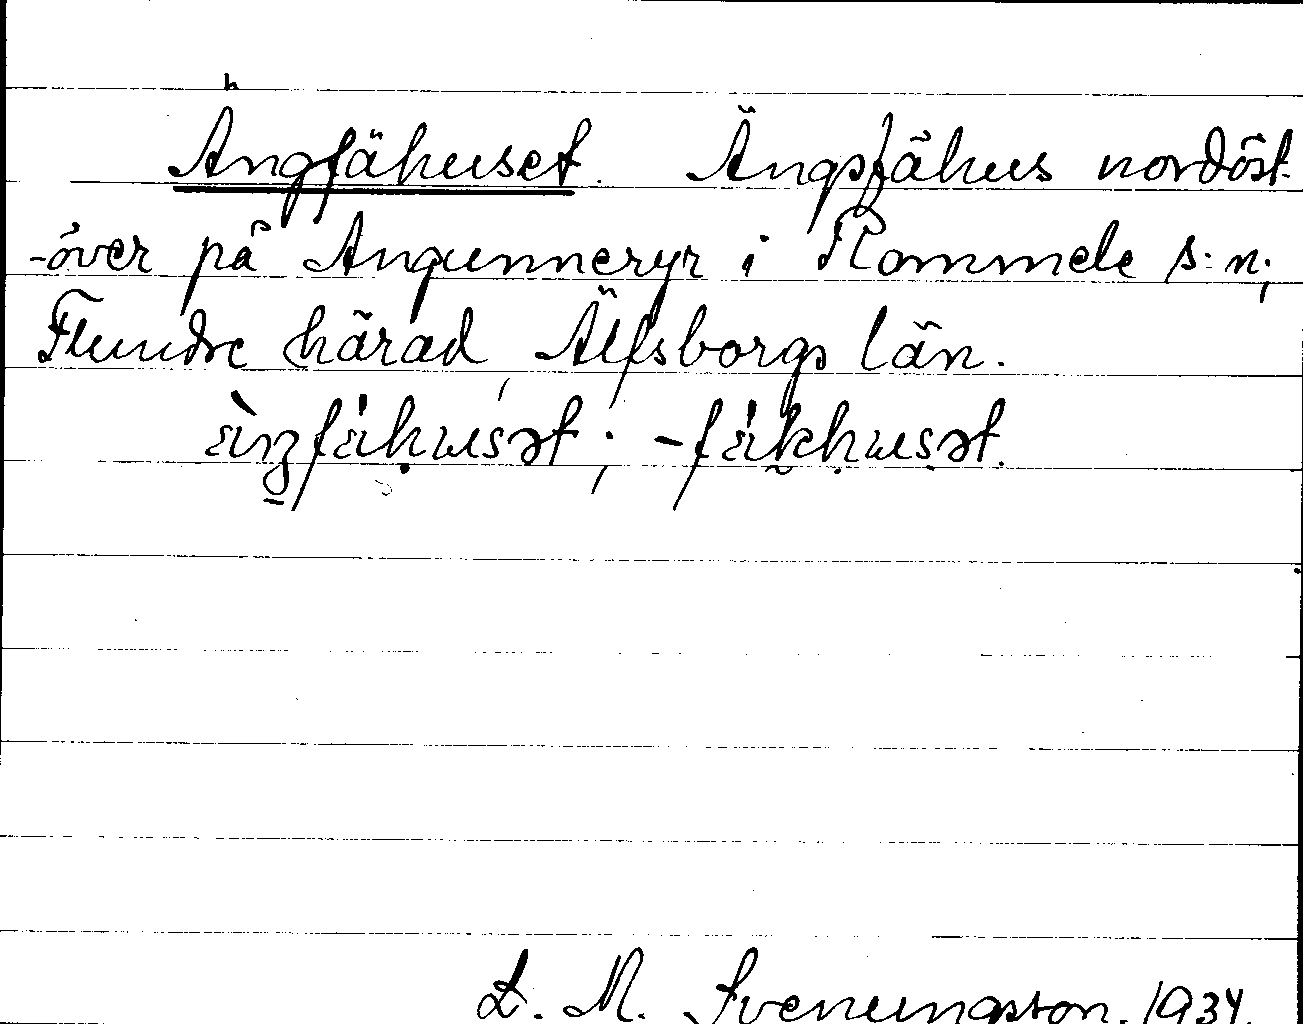 Ängfähuset. Ängsfähus nordöst-
-över på Angunneryr i Rommele s:n;
Flundre härad, Älfsborgs län.
L. M. Svenungsson. 1934.